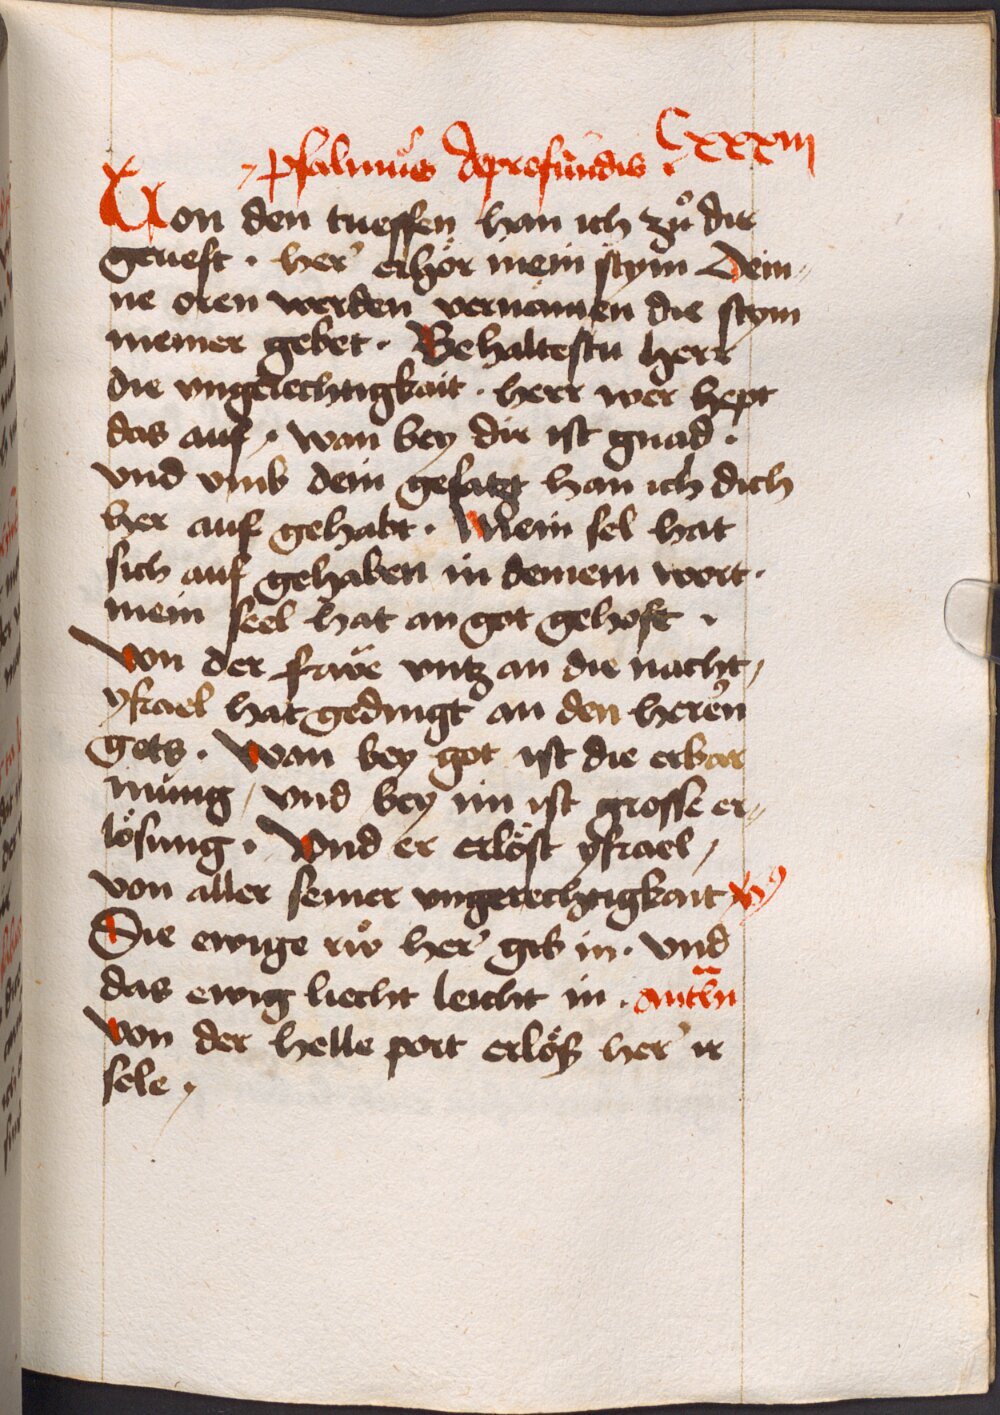 Cxxxiii
Psalmus Deprofundis
Von den tueffen han ich zů dir
geruefft . her erhör mein stym Dein
ne oren werden vernämen die stym
meiner gebet . Behaltestu herr
die vngerechtigkait . herr wer hept
das auf . wan bey dir ist gnad .
vnd vmb dein gesatzt han ich dich
her auf gehabt . Mein sel hat
sich auf gehaben in deinem wort .
mein seel hat an got gehoft .
Von der früe vntz an die nacht /
ysrael hat gedingt an den heren
gots . Wan bey got ist die erbar
mung / vnd bey im ist grosse er
lösung . Vnd er erlöst ysrael /
von aller seiner vngerechtigkait
Die ewige růw her gib in . vnd
das ewig liecht leicht in . antha
Von der helle port erlöß her ir
sele .